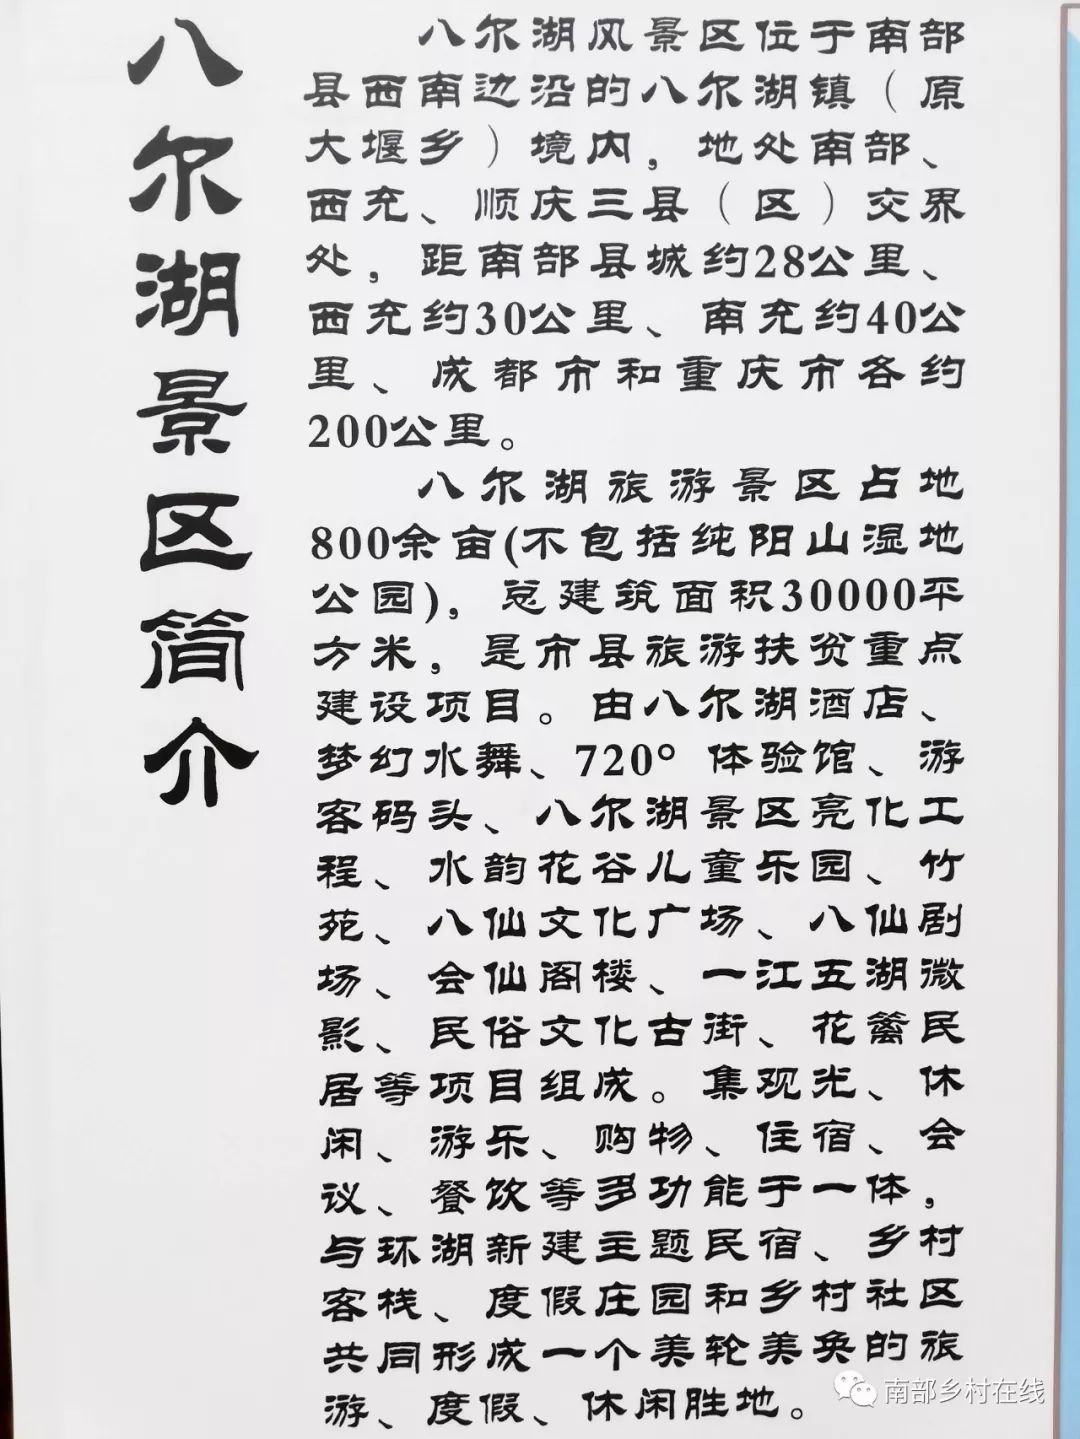 八尔湖景区简介
八尔湖风景区位于南部
县西南边沿的八尔湖镇（原
大堰乡）境内，地处南部、
西充、顺庆三县（区）交界
处，距南部县城约28公里、
西充约30公里、南充约40公
里、成都市和重庆市各约
200公里。
八尔湖旅游景区占地
800余亩(不包括纯阳山湿地
公园)，总建筑面积30000平
方米，是市县旅游扶贫重点
建设项目。由八尔湖酒店、
梦幻水舞、720° 体验馆、游
客码头、八尔湖景区亮化工
程、水韵花谷儿童乐园、竹
苑、八仙文化广场、八仙剧
场、会仙阁楼、一江五湖微
影、民俗文化古街、花篱民
居等项目组成。集观光、休
闲、游乐、购物、住宿、会
议、餐饮等多功能于一体，
与环湖新建主题民宿、乡村
客栈、度假庄园和乡村社区
共同形成一个美轮美奂的旅
游、度假、休闲胜地。
南部乡村在线